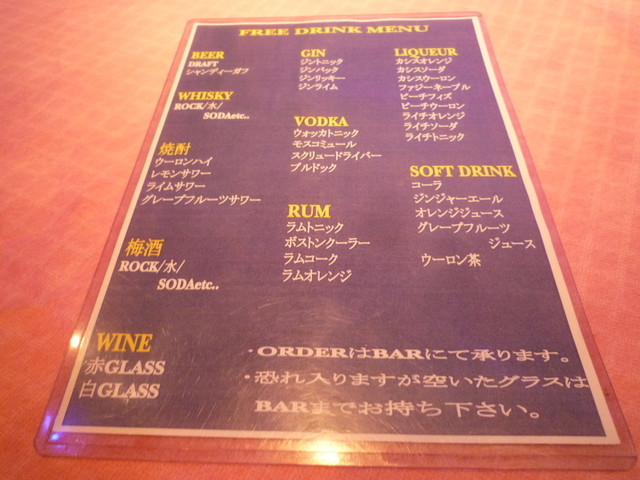 FREE DRINK MENU
BEER
DRAFT
シャンディーガフ
WHISKY
ROCK/水/
SODAetc..
焼酎
ウーロンハイ
レモンサワー
ライムサワー
グレープフルーツサワー
梅酒
ROCK/水/
SODAetc..
WINE
赤GLASS
白GLASS
GIN
ジントニック
ジンバック
ジンリッキー
ジンライム
VODKA
ウォッカトニック
モスコミュール
スクリュードライバー
ブルドック
RUM
ラムトニック
ボストンクーラー
ラムコーク
ラムオレンジ
LIQUEUR
カシスオレンジ
カシスソーダ
カシスウーロン
ファジーネーブル
ピーチフィズ
ピーチウーロン
ライチオレンジ
ライチソーダ
ライチトニック
SOFT DRINK
コーラ
ジンジャーエール
オレンジジュース
グレープフルーツ
ジュース
ウーロン茶
・ORDERはBARにて承ります。
・恐れ入りますが空いたグラスは
BARまでお持ち下さい。